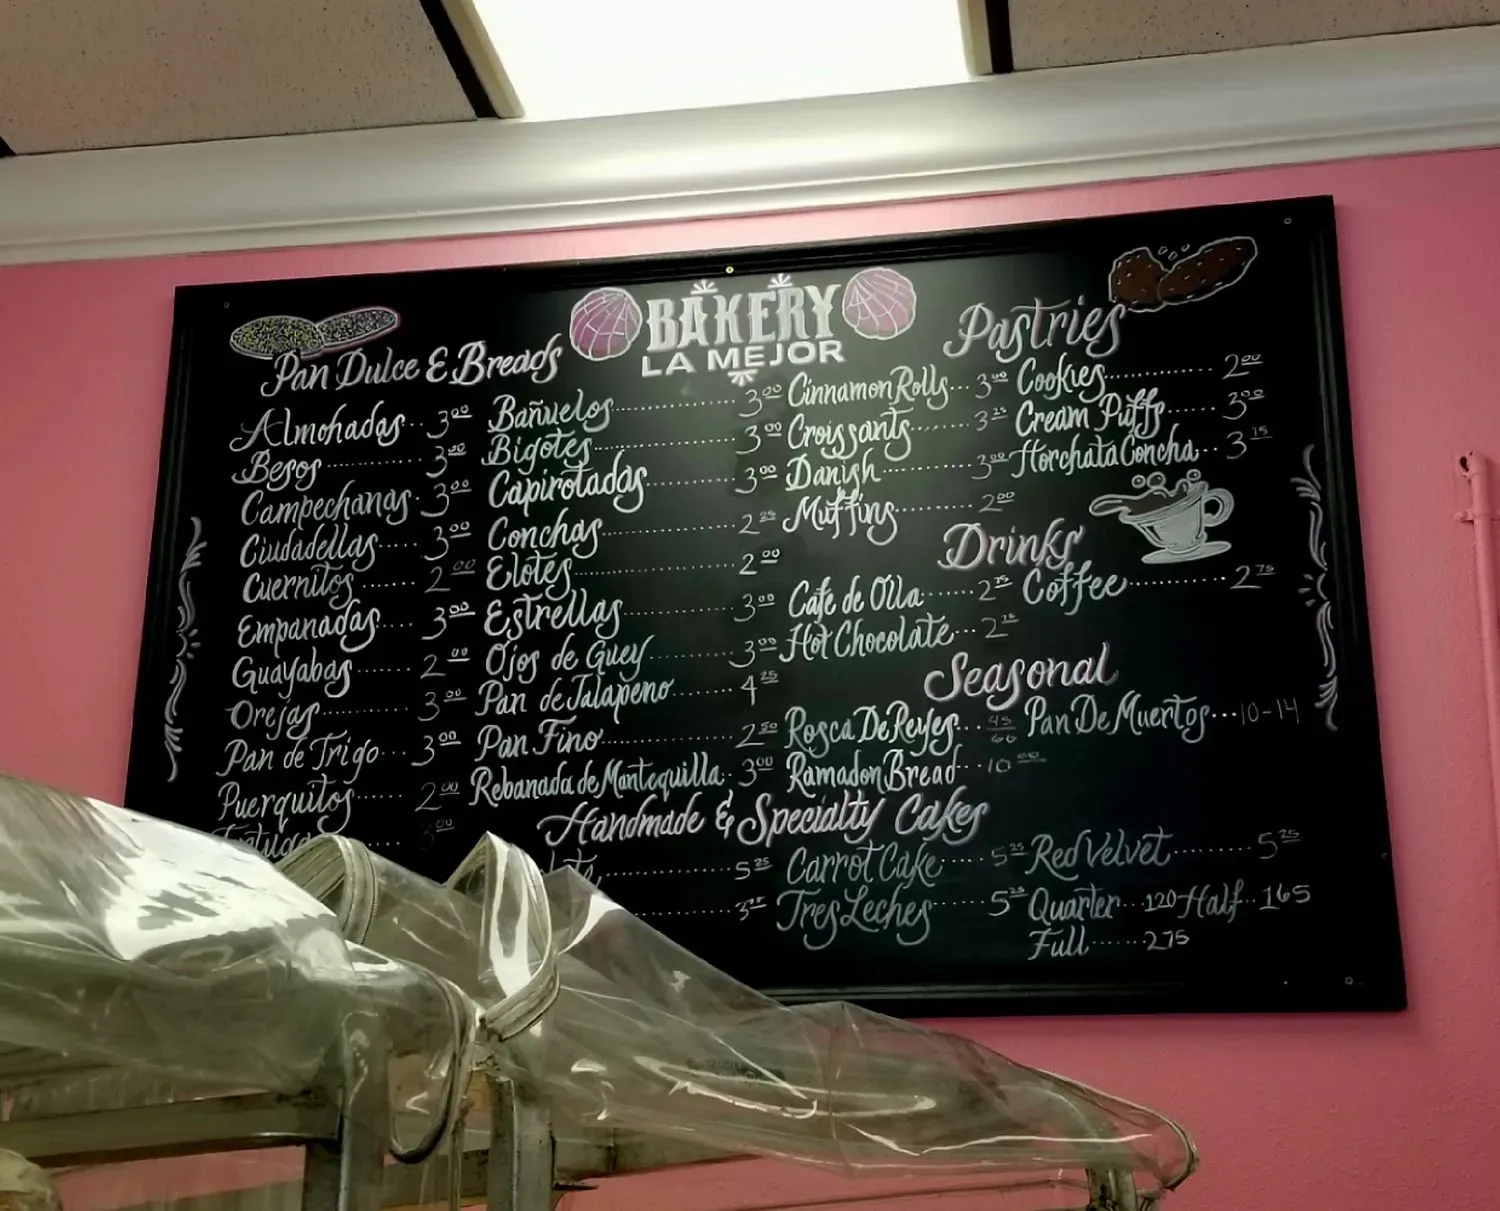 BAKERY
LA MEJOR
Pan Dulce & Breads
Almohadas.. 3.00
Besos .......... 3.00
Campechanas. 3.00
Ciudadellas..... 3.00
Cuernitos ....... 2.00
Empanadas.... 3.00
Guayabas ....... 2.00
Orejas............ 3.00
Pan de Trigo... 3.00
Puerquitos...... 2.00
3.00
Bañuelos................ 3.00
Bigotes.................. 3.00
Capirotadas............ 3.00
Conchas................. 2.25
Elotes.................... 2.00
Estrellas................ 3.00
Ojos de Guey........... 3.00
Pan de Jalapeno........ 4.25
Pan Fino................. 2.50
Rebanada de Mantequilla.. 3.00
Pastries
Cinnamon Rolls... 3.00
Croissants......... 3.25
Danish............. 3.00
Muffins............ 2.00
Cookies............. 2.00
Cream Puffs...... 3.00
Horchata Concha.. 3.75
Drinks
Cafe de Olla....... 2.75
Hot Chocolate... 2.75
Coffee............. 2.75
Seasonal
Rosca De Reyes... 45 60
Ramadon Bread... 10.00
Pan De Muertos... 10-14
Handmade & Specialty Cakes
5.25
Carrot Cake..... 5.25
Tres Leches...... 5.25
Red Velvet.......... 5.25
Quarter... 120 Half.. 165
Full...... 275